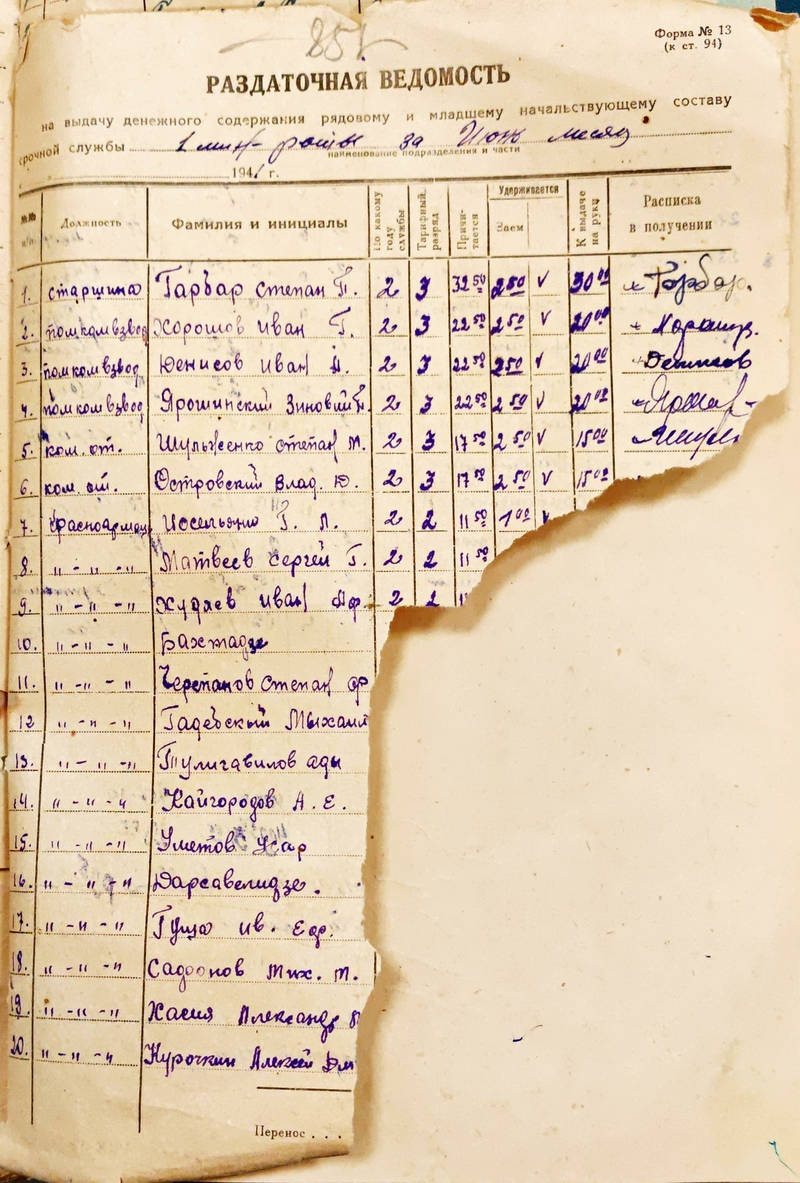 Форма № 13
(к ст. 94)
РАЗДАТОЧНАЯ ВЕДОМОСТЬ
на выдачу денежного содержания рядовому и младшему начальствующему составу
срочной службы 1 мин. роты за Июнь месяц
наименование подразделения и части
1941 г.
№№ Должность Фамилия и инициалы По какому году службы Тарифный разряд Причитается Удерживается Заем К выдаче на руки Расписка в получении
1. старшина Гарбар Степан Г. 2 3 32 50 2 50 V 30 00 Гарбар
2. помкомвзвод Хорошов Иван Г. 2 3 22 50 2 50 V 20 00
3. помкомвзвод Денисов Иван 2 3 22 50 2 50 V 20 00 Денисов
4. помкомвзвод Ярошинский Зиновий 2 3 22 50 2 50 V 20 00
5. ком. от. Шульженко Степан М. 2 3 17 50 2 50 V 15 00
6. ком. от. Островский Влад. Ю. 2 3 17 50 2 50 V 15 00
7. Красноармец Г. Л. 2 2 11 50 1 00 V
8. " - " - " Матвеев Сергей Г. 2 2 11 50
9. " - " - " Худяев Иван 2 2
10. " - " - " Бахтадзе
11. " - " - " Черепанов Степан
12 " - " - " Гадевский Михаил
13. " - " - " Тулигавилов
14. " - " - " Кайгородов А. Е.
15. " - " - " Уметов
16. " - " - " Дарсавелидзе.
17. " - " - " Гуща Ив. Ефр.
18. " - " - " Садронов Мих. М.
19. " - " - " Хасия Александр
20. " - " - " Курочкин Алексей
Перенос . . .